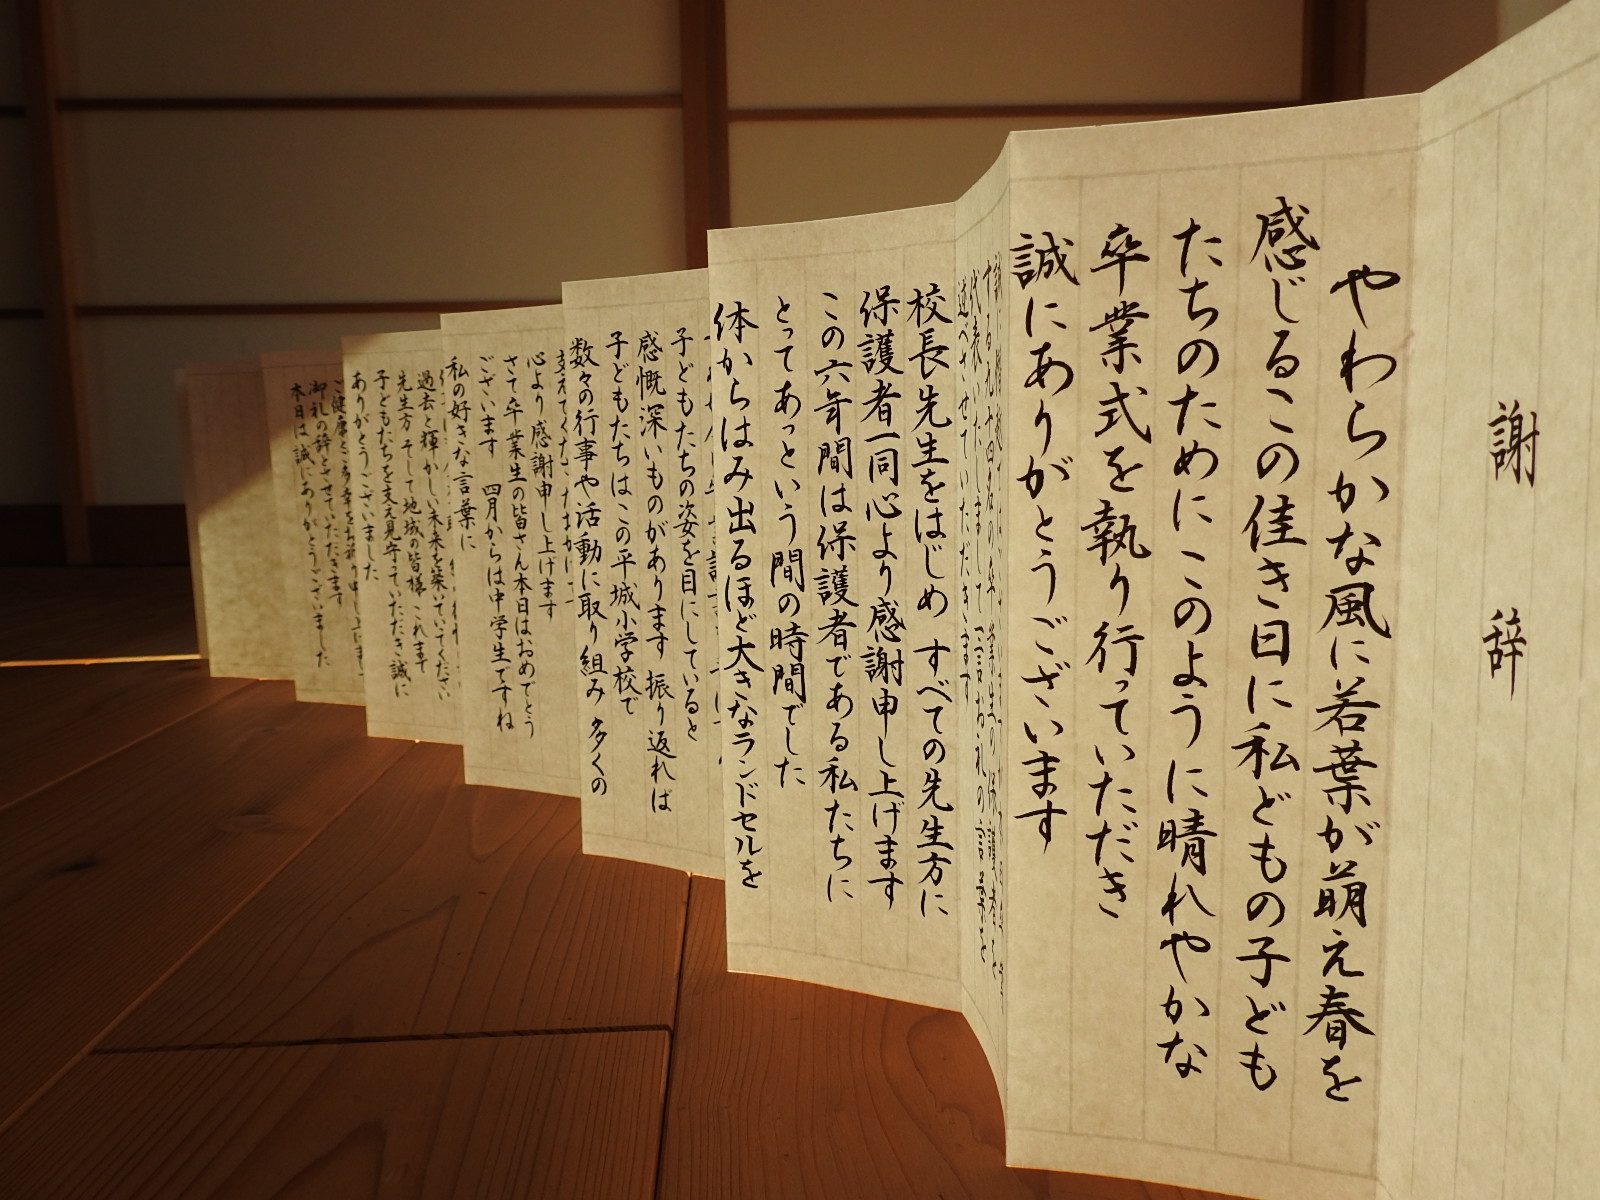 謝辞
やわらかな風に若葉が萌え春を
感じるこの佳き日に私どもの子ども
たちのためにこのように晴れやかな
卒業式を執り行っていただき
誠にありがとうございます
代表いたしまして一言お礼の言葉を
述べさせていただきます
校長先生をはじめ すべての先生方に
保護者一同心より感謝申し上げます
この六年間は保護者である私たちに
とってあっという間の時間でした
体からはみ出るほど大きなランドセルを
子どもたちの姿を目にしていると
感慨深いものがあります 振り返れば
子どもたちはこの平城小学校で
数々の行事や活動に取り組み 多くの
心より感謝申し上げます
さて卒業生の皆さん本日はおめでとう
ございます 四月からは中学生ですね
私の好きな言葉に
過去と輝かしい未来を築いていてください
先生方 そして地域の皆様 これまで
子どもたちを支え見守っていただき誠に
ありがとうございました
御礼の辞とさせていただきます
本日は誠にありがとうございました